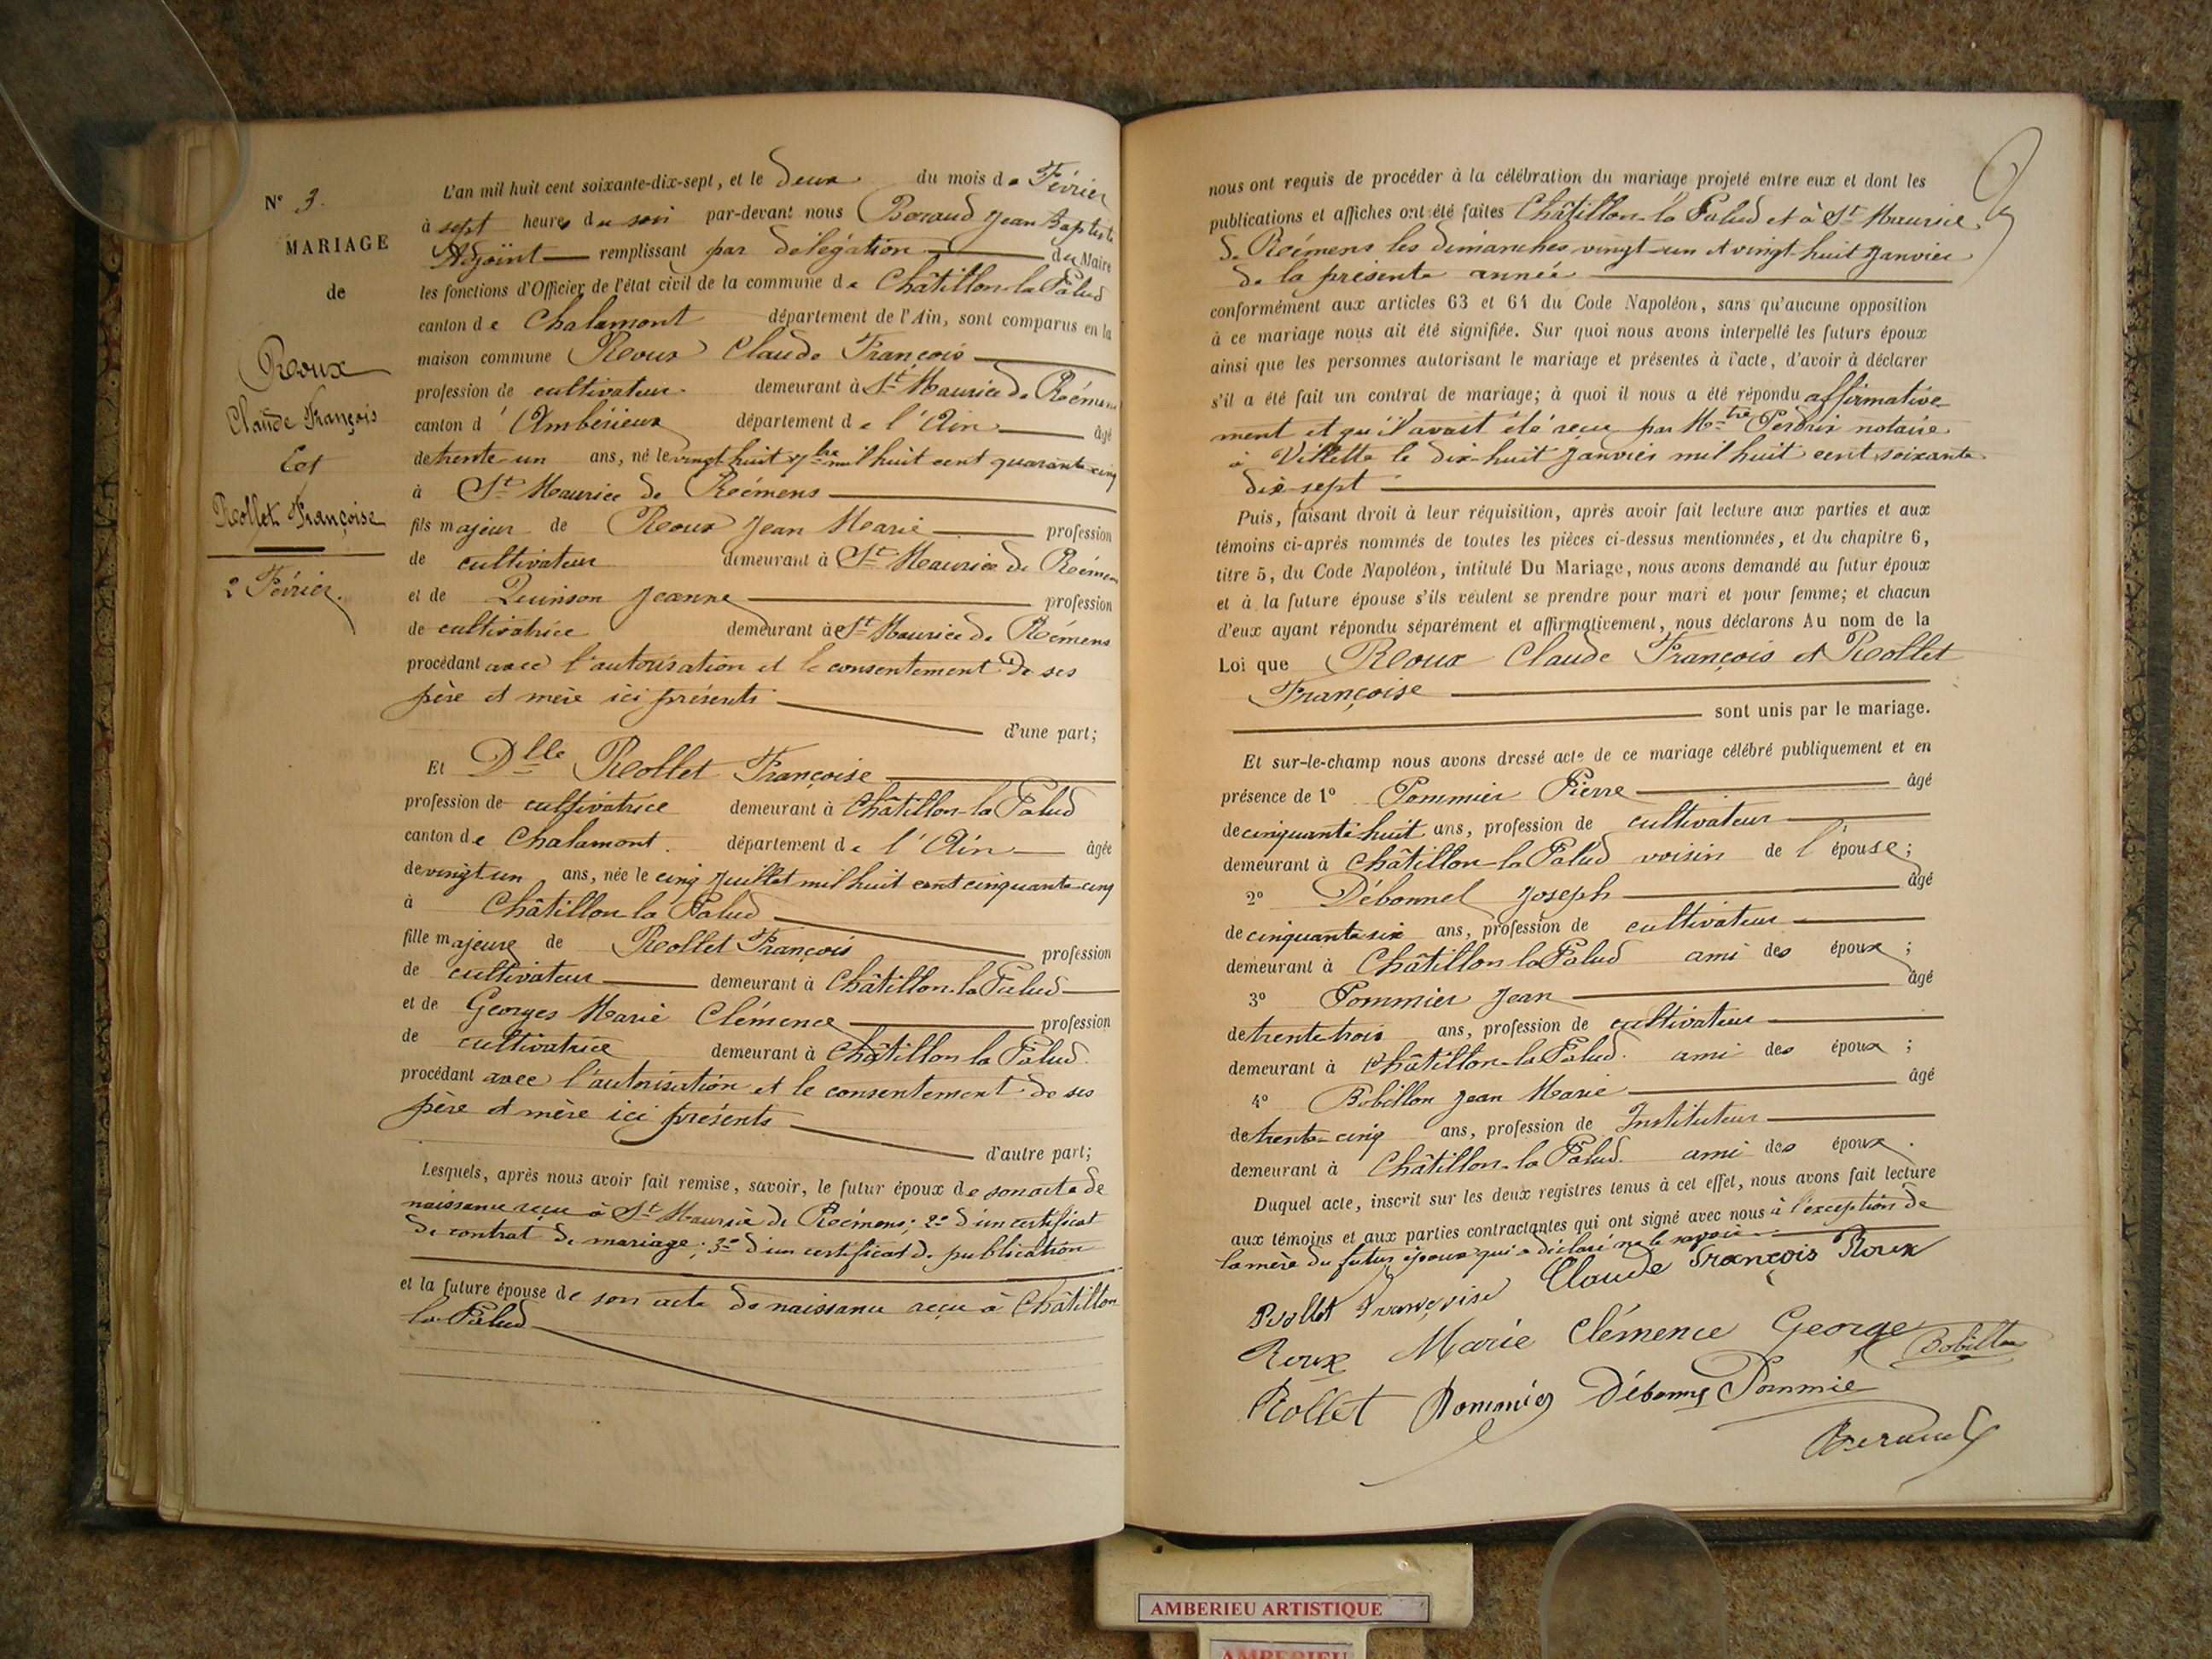 N° 3.
MARIAGE
de
Roux
Claude François
Et
Rollet Françoise
2 Février.
L'an mil huit cent soixante-dix-sept, et le deux du mois de Février
à sept heures du soir par-devant nous Beraud Jean Baptiste
Adjoint remplissant par délégation du Maire
les fonctions d'Officier de l'état civil de la commune de Châtillon-la-Palud
canton de Chalamont département de l'Ain, sont comparus en la
maison commune Roux Claude François
profession de cultivateur demeurant à St Maurice de Rémens
canton d' Ambérieux département de l'Ain âgé
de trente un ans, né le vingt huit 7bre mil huit cent quarante cinq
à St Maurice de Rémens
fils majeur de Roux Jean Marie profession
de cultivateur demeurant à St Maurice de Rémens
et de Quinson Jeanne profession
de cultivatrice demeurant à St Maurice de Rémens
procédant avec l'autorisation et le consentement de ses
père et mère ici présents
d'une part;
Et Dlle Rollet Françoise
profession de cultivatrice demeurant à Châtillon-la Palud
canton de Chalamont. département de l'Ain âgée
de vingt un ans, née le cinq Juillet mil huit cent cinquante-cinq
à Châtillon-la Palud
fille majeure de Rollet François profession
de cultivateur demeurant à Châtillon-la Palud
et de Georges Marie Clémence profession
de cultivatrice demeurant à Châtillon la Palud.
procédant avec l'autorisation et le consentement de ses
père et mère ici présents
d'autre part;
Lesquels, après nous avoir fait remise, savoir, le futur époux de son acte de
naissance reçu à St Maurice de Rémens; 2° d'un certificat
de contrat de mariage; 3° d'un certificat de publication
et la future épouse de son acte de naissance reçu à Châtillon
la Palud
nous ont requis de procéder à la célébration du mariage projeté entre eux et dont les
publications et affiches ont été faites Châtillon-la Palud et à St Maurice
de Rémens les dimanches vingt-un et vingt-huit Janvier
de la présente année
conformément aux articles 63 et 64 du Code Napoléon, sans qu'aucune opposition
à ce mariage nous ait été signifiée. Sur quoi nous avons interpellé les futurs époux
ainsi que les personnes autorisant le mariage et présentes à l'acte, d'avoir à déclarer
s'il a été fait un contrat de mariage; à quoi il nous a été répondu affirmative-
ment et qu'il avait été reçu par Mtre Perdrix notaire
à Villette le dix-huit Janvier mil huit cent soixante
dix-sept
Puis, faisant droit à leur réquisition, après avoir fait lecture aux parties et aux
témoins ci-après nommés de toutes les pièces ci-dessus mentionnées, et du chapitre 6,
titre 5, du Code Napoléon, intitulé Du Mariage, nous avons demandé au futur époux
et à la future épouse s'ils veulent se prendre pour mari et pour femme; et chacun
d'eux ayant répondu séparément et affirmativement, nous déclarons Au nom de la
Loi que Roux Claude François et Rollet
Françoise
sont unis par le mariage.
Et sur-le-champ nous avons dressé acte de ce mariage célébré publiquement et en
présence de 1° Pommier Pierre âgé
de cinquante huit ans, profession de cultivateur
demeurant à Châtillon-la Palud voisin de l'épouse;
2° Débonnel Joseph âgé
de cinquante six ans, profession de cultivateur
demeurant à Châtillon la Palud ami des époux;
3° Pommier Jean âgé
de trente trois ans, profession de cultivateur
demeurant à Châtillon-la Palud. ami des époux;
4° Bobillon Jean Marie âgé
de trente-cinq ans, profession de Instituteur
demeurant à Châtillon-la Palud. ami des époux.
Duquel acte, inscrit sur les deux registres tenus à cet effet, nous avons fait lecture
aux témoins et aux parties contractantes qui ont signé avec nous à l'exception de
la mère du futur époux qui a déclaré ne le savoir
Rollet Françoise Claude François Roux
Roux Marie Clémence George Bobillon
Rollet Pommier Débonnel Pommié
Beraud
AMBERIEU ARTISTIQUE
AMBERIEU